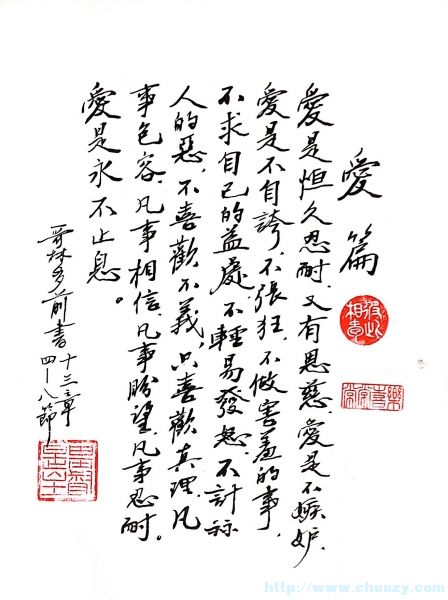 愛篇
彼此相愛
愛是恒久忍耐、又有恩慈、愛是不嫉妒、
愛是不自誇、不張狂、不做害羞的事、
不求自己的益處、不輕易發怒、不計祘
人的惡、不喜歡不義、只喜歡真理、凡
事包容、凡事相信、凡事盼望、凡事忍耐。
愛是永不止息。
哥林多前書
十三章
四-八節
http://www.chunzy.com